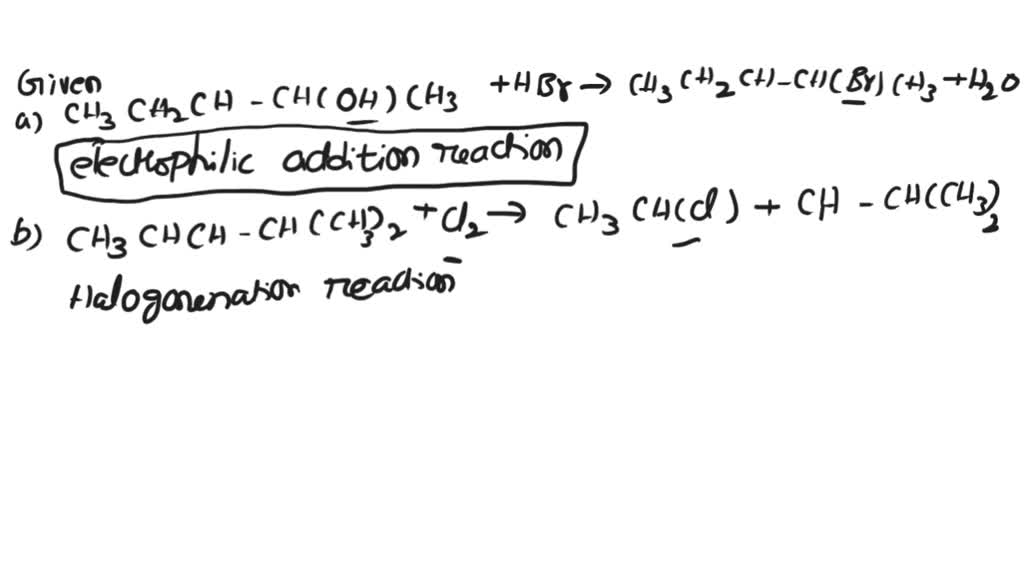 Given
a) CH3 CH2CH - CH(OH) CH3 + HBr → CH3 CH2 CH - CH(Br) CH3 + H2O
electrophilic addition reaction
b) CH3 CHCH - CH(CH3)2 + Cl2 → CH3 CH(Cl) + CH - CH(CH3)2
Halogonenation reaction